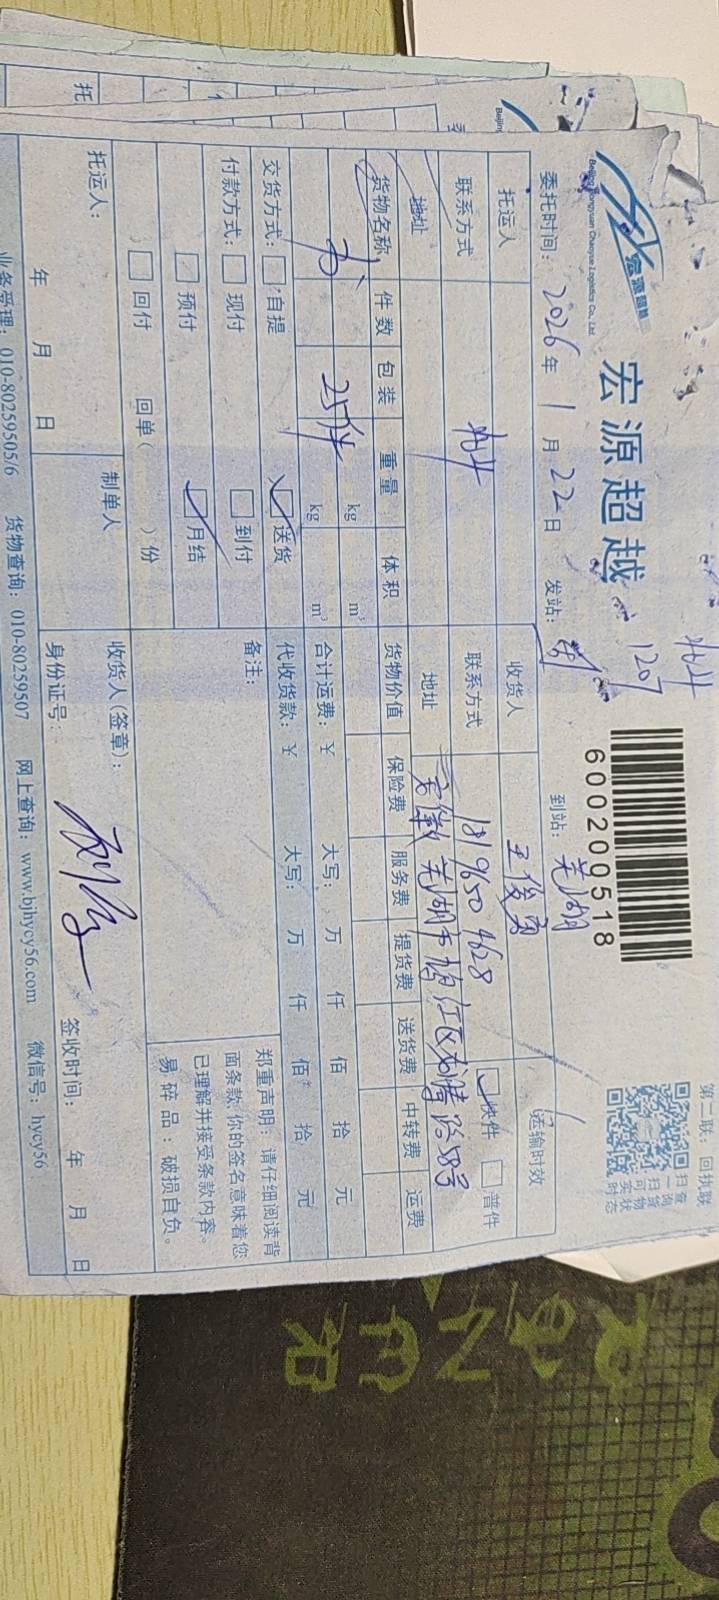 第二联：回执联
扫一扫
查货物
询可实
时状态
宏源超越
Beijing Hongyuan Chaoyue Logistics Co., Ltd
宏源超越
1207
600200518
委托时间：2026年1月22日 发站： 到站：芜湖
托运人 收货人 王俊勇 运输时效
联系方式 联系方式 181 9650 4628 快件 普件
地址 地址 安徽芜湖市鸠江区 路58号
货物名称 件数 包装 重量 体积 货物价值 保险费 服务费 提货费 送货费 中转费 运费
kg m³
25件 kg m³ 合计运费：￥ 大写： 万 仟 佰 拾 元
交货方式： 自提 送货 代收货款：￥ 大写： 万 仟 佰 拾 元
付款方式： 现付 到付 备注：
预付 月结
回付 回单（ ）份
郑重声明：请仔细阅读背
面条款，你的签名意味着您
已理解并接受条款内容。
易碎品：破损自负。
托运人： 制单人 收货人(签章)：
年 月 日 身份证号： 签收时间： 年 月 日
业务受理：010-80259505/6 货物查询：010-80259507 网上查询：www.bjhycy56.com 微信号：hycy56